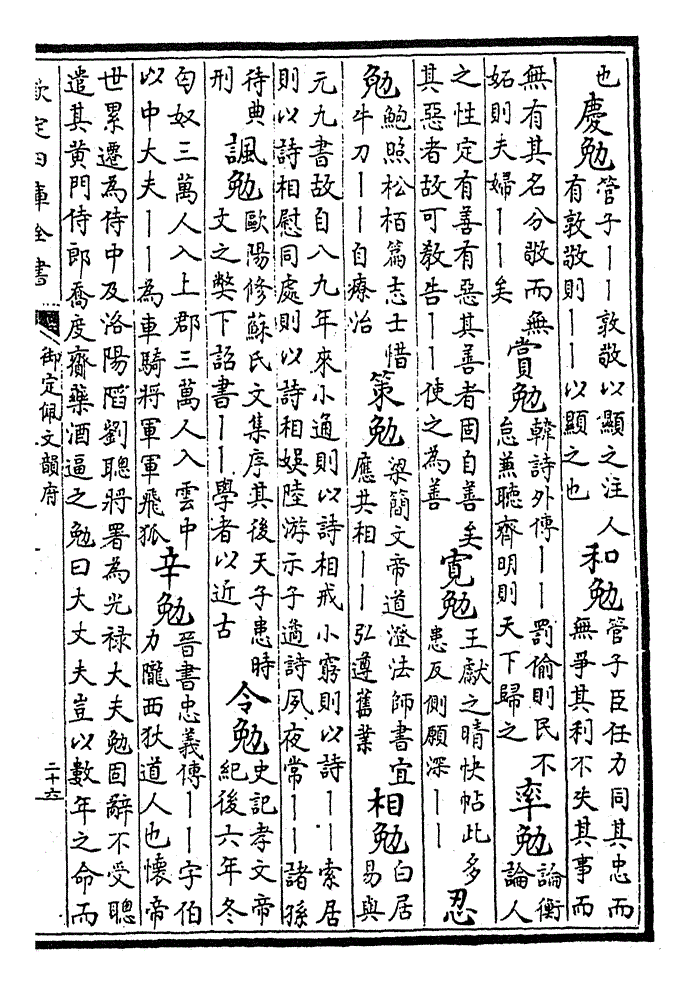 也
慶勉
管子丨丨敦敬以顯之注人
有敦敬則丨丨以顯之也
和勉
管子臣任力同其忠而
無爭其利不失其事而
無有其名分敬而無
妬則夫婦丨丨矣
賞勉
韓詩外傳丨丨罰偷則民不
怠兼聽齊明則天下歸之
率勉
論衡
論人
之性定有善有惡其善者固自善矣
其惡者故可教告丨丨使之為善
寛勉
王獻之晴快帖此多
患反側願深丨丨
忍
勉
鮑照松栢篇志士惜
牛刀丨丨自療治
策勉
梁簡文帝道澄法師書宜
應共相丨丨弘遵舊業
相勉
白居
易與
元九書故自八九年來小通則以詩相戒小窮則以詩丨丨索居
則以詩相慰同處則以詩相娛陸游示子遹詩夙夜常丨丨諸孫
待典
刑
諷勉
歐陽修蘇氏文集序其後天子患時
文之弊下詔書丨丨學者以近古
令勉
史記孝文帝
紀後六年冬
匈奴三萬人入上郡三萬人入雲中
以中大夫丨丨為車騎將軍軍飛狐
辛勉
晉書忠義傳丨丨字伯
力隴西狄道人也懷帝
世累遷為侍中及洛陽䧟劉聰將署為光祿大夫勉固辭不受聰
遣其黃門侍郎喬度齎藥酒逼之勉曰大丈夫豈以數年之命而
欽定四庫全書
御定佩文韻府
二十六